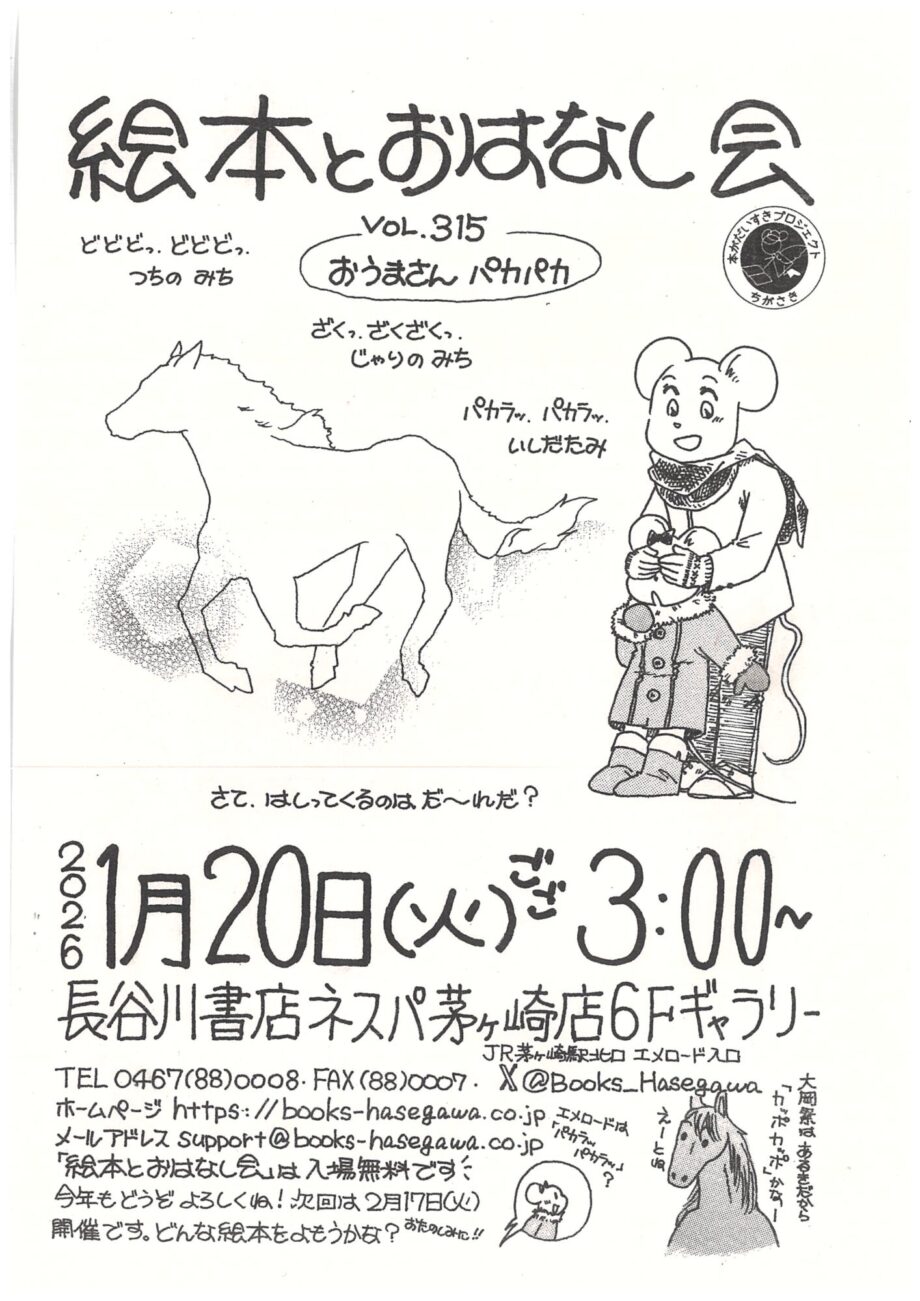 絵本とおはなし会
VOL.315
おうまさん パカパカ
本がだいすきプロジェクト
ちがさき
どどどっ、どどどっ、
つちの みち
ざくっ、ざくざくっ、
じゃりの みち
パカラッ、パカラッ、
いしだたみ
さて、はしってくるのは、だ〜れだ?
2026
1月20日(火)ごご3:00〜
長谷川書店ネスパ茅ヶ崎店6Fギャラリー
JR茅ヶ崎駅北口 エメロード入口
TEL 0467(88)0008・FAX(88)0007・ X@Books_Hasegawa
ホームページ https://books-hasegawa.co.jp
メールアドレス support@books-hasegawa.co.jp
「絵本とおはなし会」は入場無料です
今年もどうぞ よろしくね!次回は2月17日(火)
開催です。どんな絵本をよもうかな? おたのしみに!!
エメロードは
「パカラッ
パカラッ」?
大岡祭は あるきだから
「カッポカッポ」かなー
えーとね